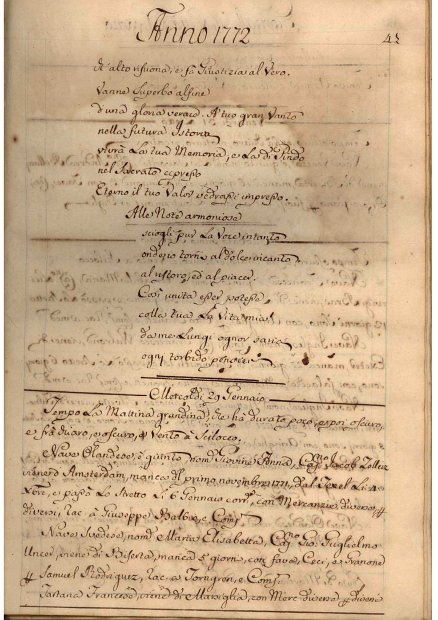 Anno 1772
43
d'alto risuona, e fà Giustizia al Vero.
Vanne Superbo alfine
d'una gloria verace. Al tuo gran Vanto
nella futura Istoria
vivrà La tua Memoria, e Là di Pindo
nel Sacrato cipresso
Eterno il tuo Valor vedrassi impresso.
Alle Note armoniose
sciogli pur La Voce intanto
ond'io torni al dolce incanto
al ristoro, ed al piacer.
Così unita esser potessi
colla tua La Vita mia
da me Lungi ognor saria
ogni torbido pensier.
Mercoldì 29 Gennaio
Tempo La Mattina grandina, che ha durato poco, e poi oscuro,
e frà chiaro, e oscuro, Vento à Scilocco.
Nave Olandese, è giunto nom. Giovine Anna, Cap.no Jacob
viene d'Amsterdam, manca dal primo novembre 1771, dal Texel Li 4
e passò Lo Stretto Li 6 Gennaio corr.e, con Mercanzie diverse, p
diversi, rac. à Giuseppe e Comp.
Nave Svedese, nom. Maria Elisabetta, Cap.no Gio. Guglielmo
viene di Biserta, manca 5 giorni, con fave, Ceci, e Granone
p Samuel Rodriguiz, rac. a e Comp.
Tartana Francese, viene di Marsiglia, con Merc. diverse, p diversi